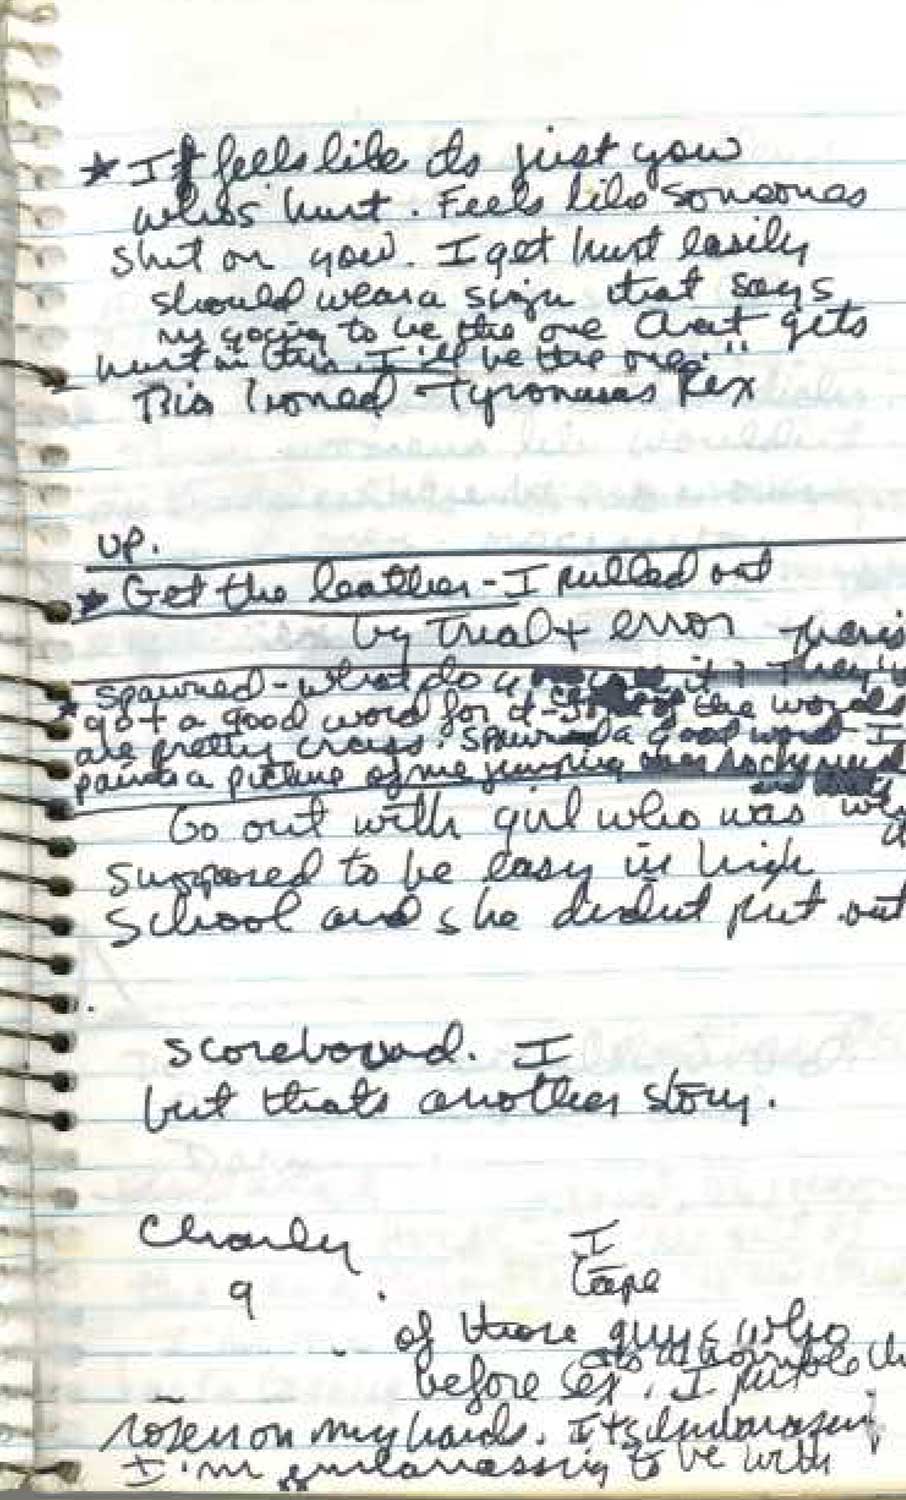 ★ It feels like its just you
who's hurt. Feels like someones
shit on you. I get hurt easily
should wear a sign that says
going to be the one that gets
hurt in this. I'll be the one."
Rex
up.
★ Get the leather - I pulled out
by trial + error
★ spawned - what do it? They
got a good word for it - of the words
are pretty crass. Spawned a good word - I
paint a picture of me jumping
Go out with girl who was
supposed to be easy in high
school and she didnt put out
scoreboard. I
but thats another story.
Charley
9
I
tape
of those guys who
before sex. I
on my hands. Its embarassing
I'm embarrassing to be with